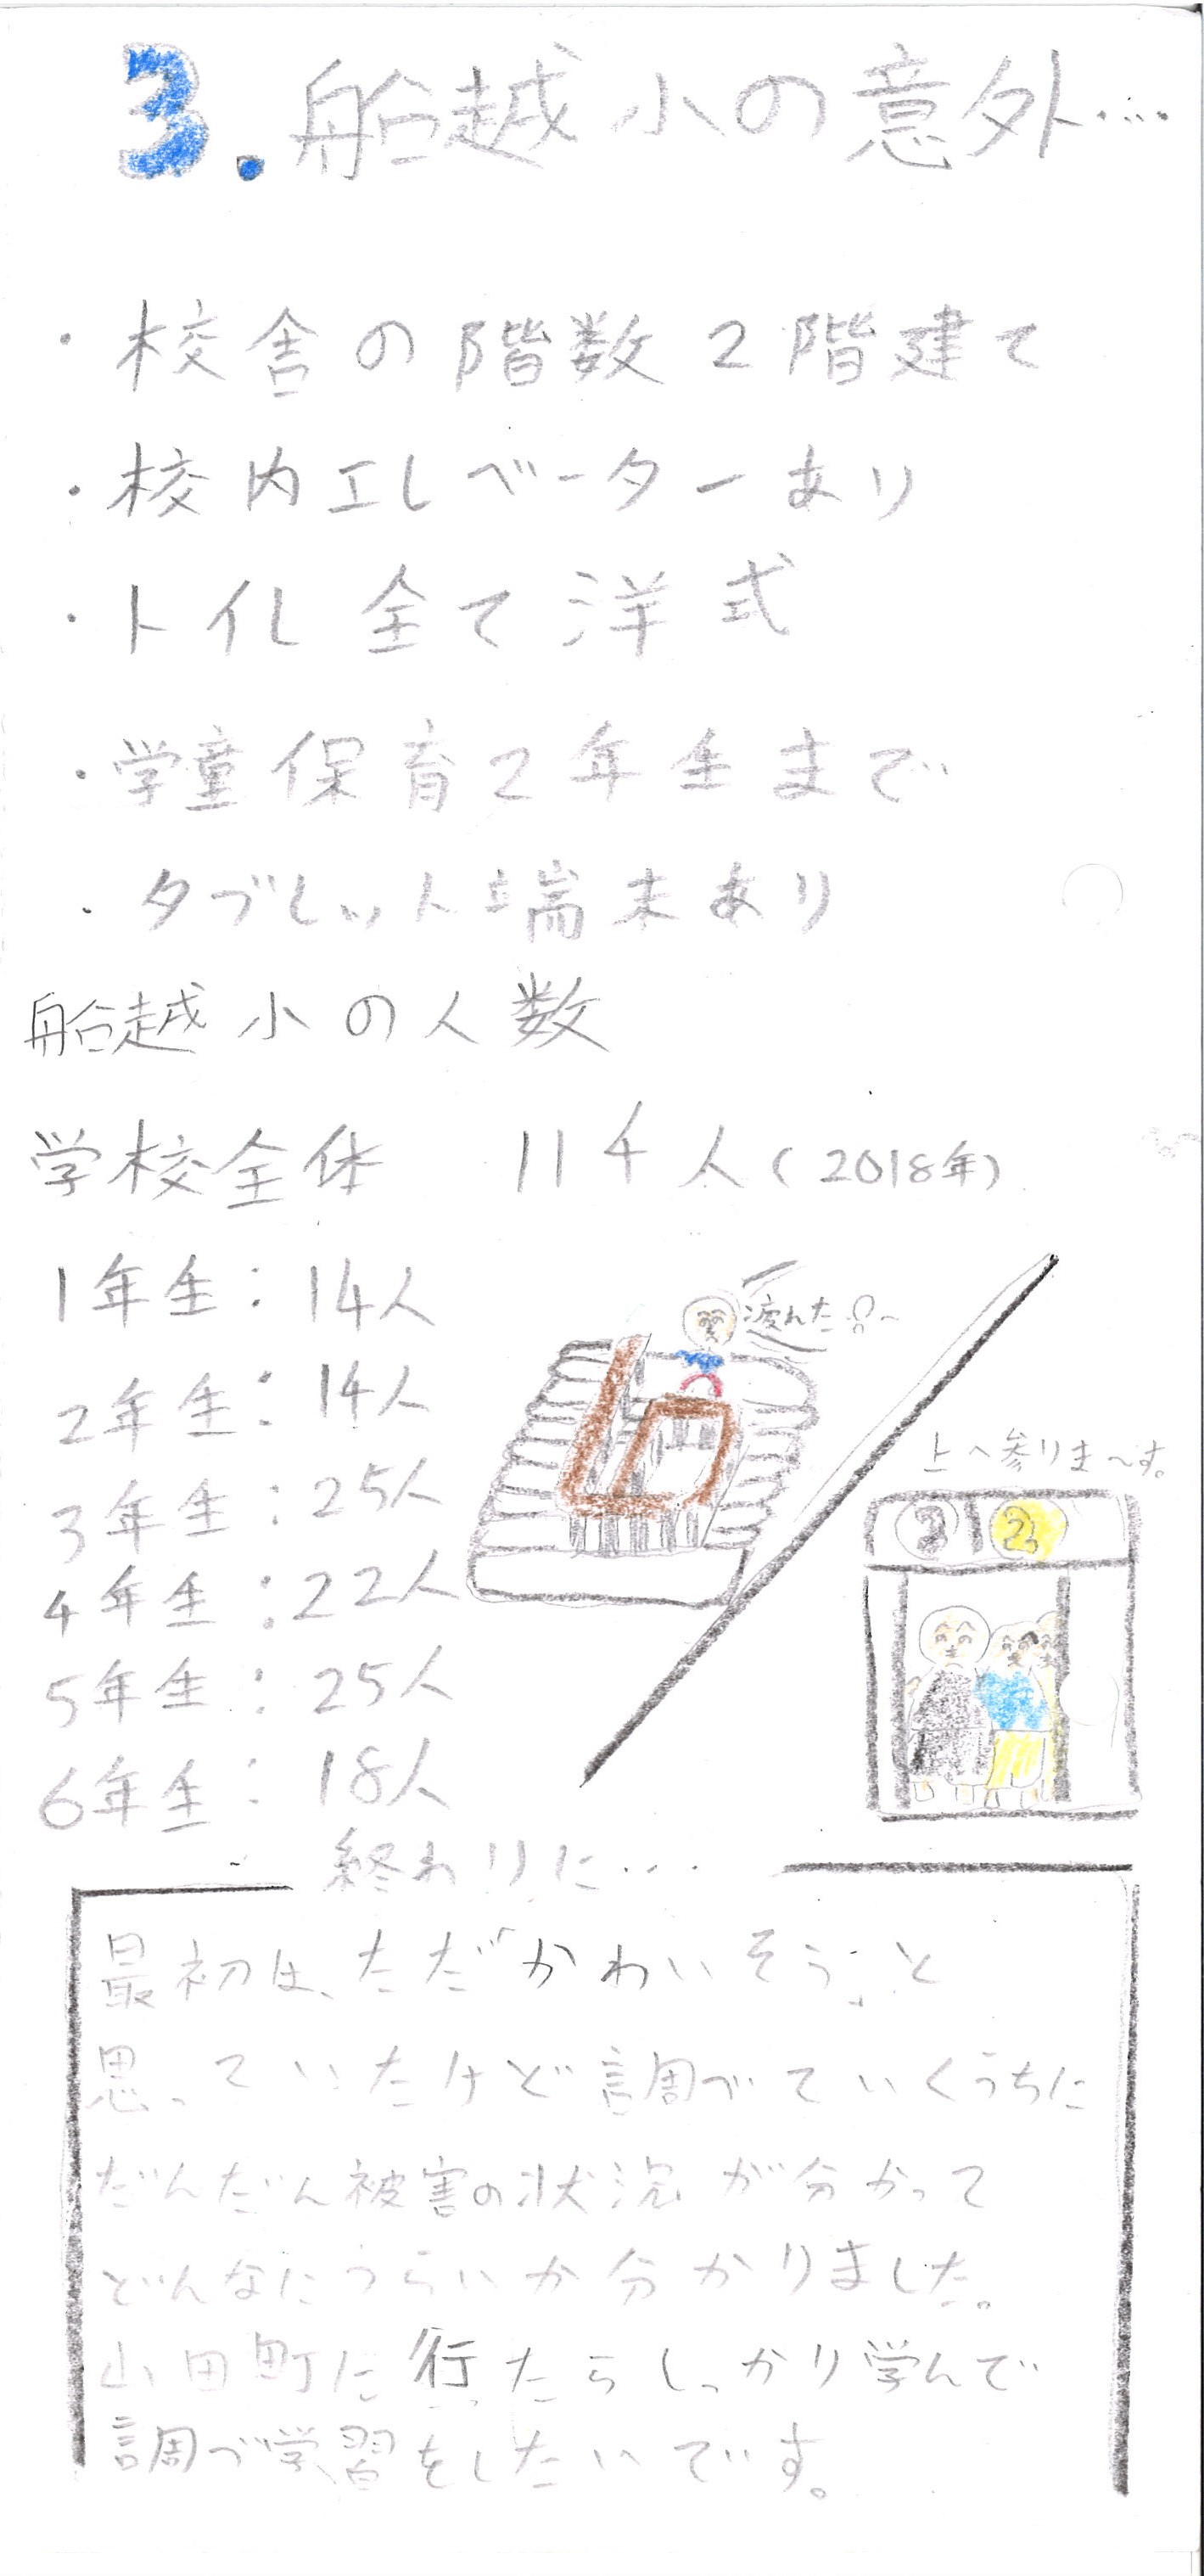 3.船越小の意外…
・校舎の階数2階建て
・校内エレベーターあり
・トイレ全て洋式
・学童保育2年生まで
・タブレット端末あり
船越小の人数
学校全体 114人(2018年)
1年生:14人
2年生:14人
3年生:25人
4年生:22人
5年生:25人
6年生:18人
疲れた
上へ参りま〜す。
2
終わりに…
最初は、ただ「かわいそう」と
思っていたけど調べていくうちに
だんだん被害の状況が分かって
どんなにつらいか分かりました。
山田町に行ったらしっかり学んで
調べ学習をしたいです。